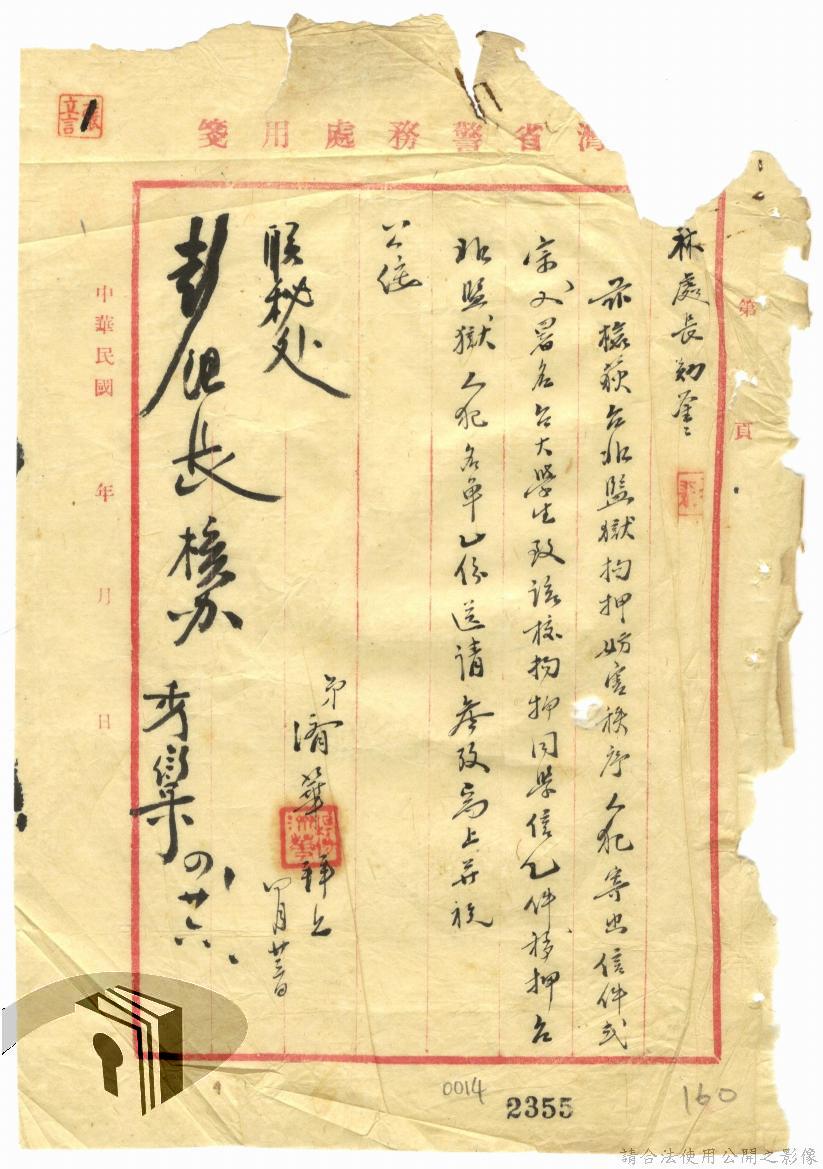 灣省警務處用箋
第 頁
林處長勛鑒
茲檢獲台北監獄拘押妨害秩序人犯寄出信件弍
宗又署名台大學生致該校拘押同學信乙件移押台
北監獄人犯名單乙份送請參考為上并祝
公绥
弟 濟華 拜上
四月廿三日
联秘处
彭组長核办
秀欒 四廿六
中華民國 年 月 日
0014
2355
160
請合法使用公開之影像